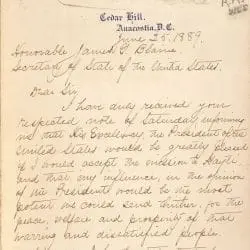 Cedar Hill,
Anacostia, D.C.
June 25, 1889.
Honorable James G. Blaine,
Secretary of State of the United States.
Dear Sir:
I have duly received your
respected note of Saturday informing
me that His Excellency, the President of the
United States would be greatly pleased
if I would accept the mission to Hayti
and that my influence, in the opinion
of the President would be the most
potent we could send thither, for the
peace, welfare and prosperity of that
warring and dissatisfied people.